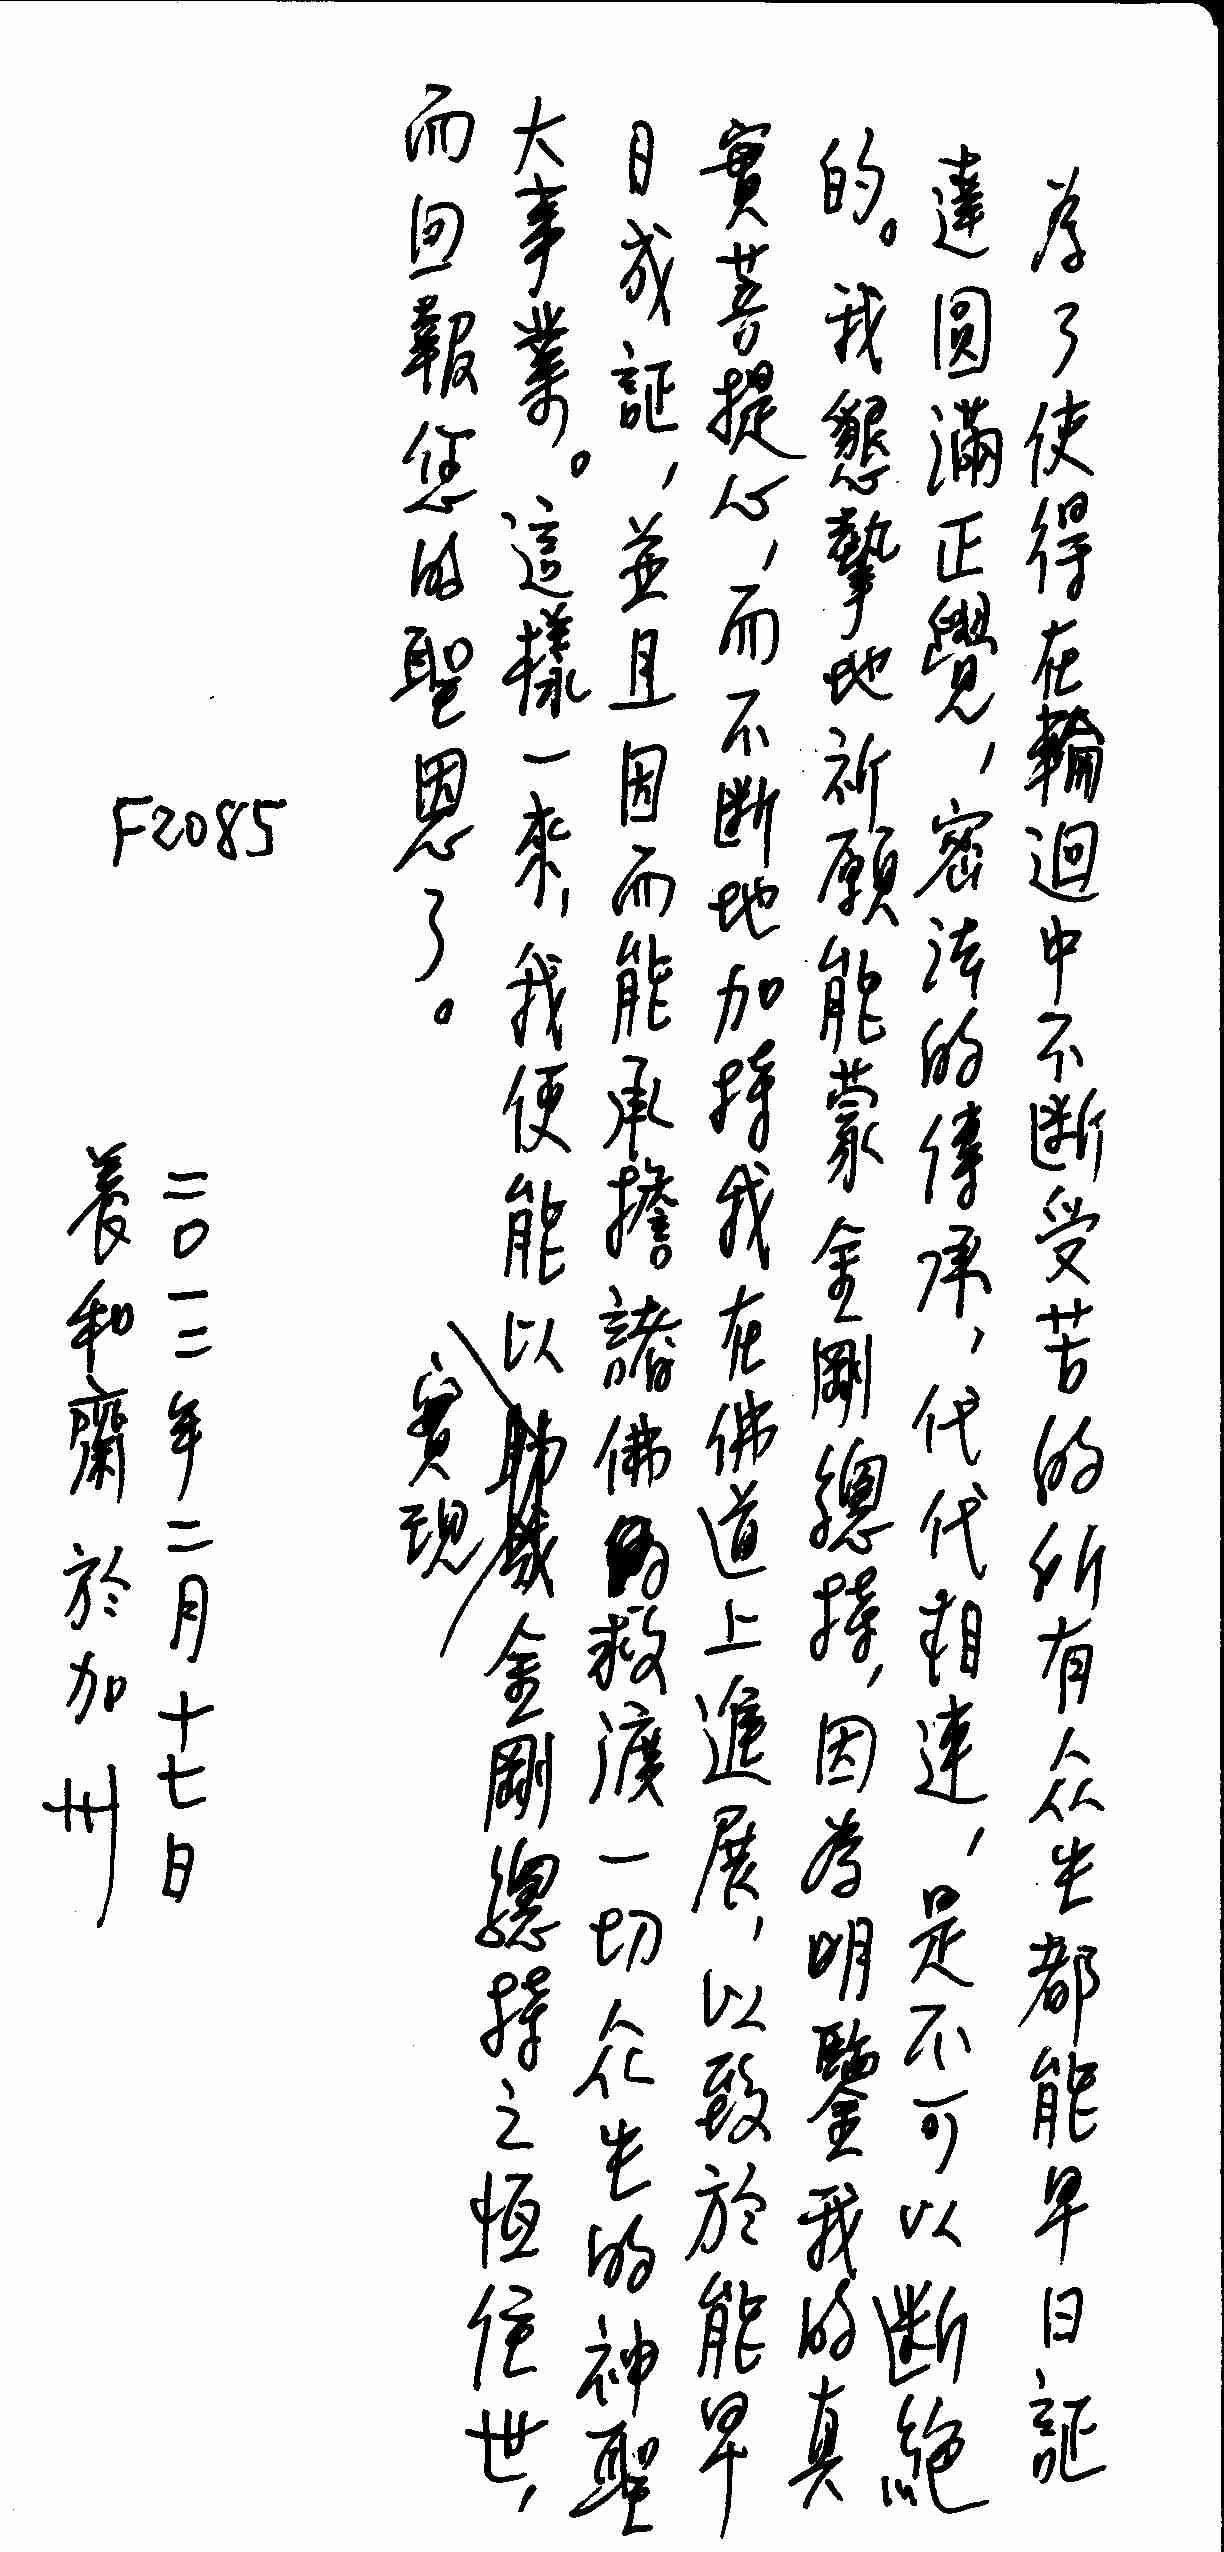 為了使得在輪迴中不斷受苦的所有众生都能早日証
達圓滿正覺，密法的傳承，代代相連，是不可以斷絕
的。我懇摯地祈願能蒙金剛總持，因為明鑒我的真
實菩提心，而不斷地加持我在佛道上進展，以致於能早
日成証，並且因而能承擔諸佛救渡一切众生的神聖
大事業。這樣一來，我便能以實現金剛總持之恒住世，
而回報您的聖恩了。
F2085
二〇一二年二月十七日
養和齋於加州